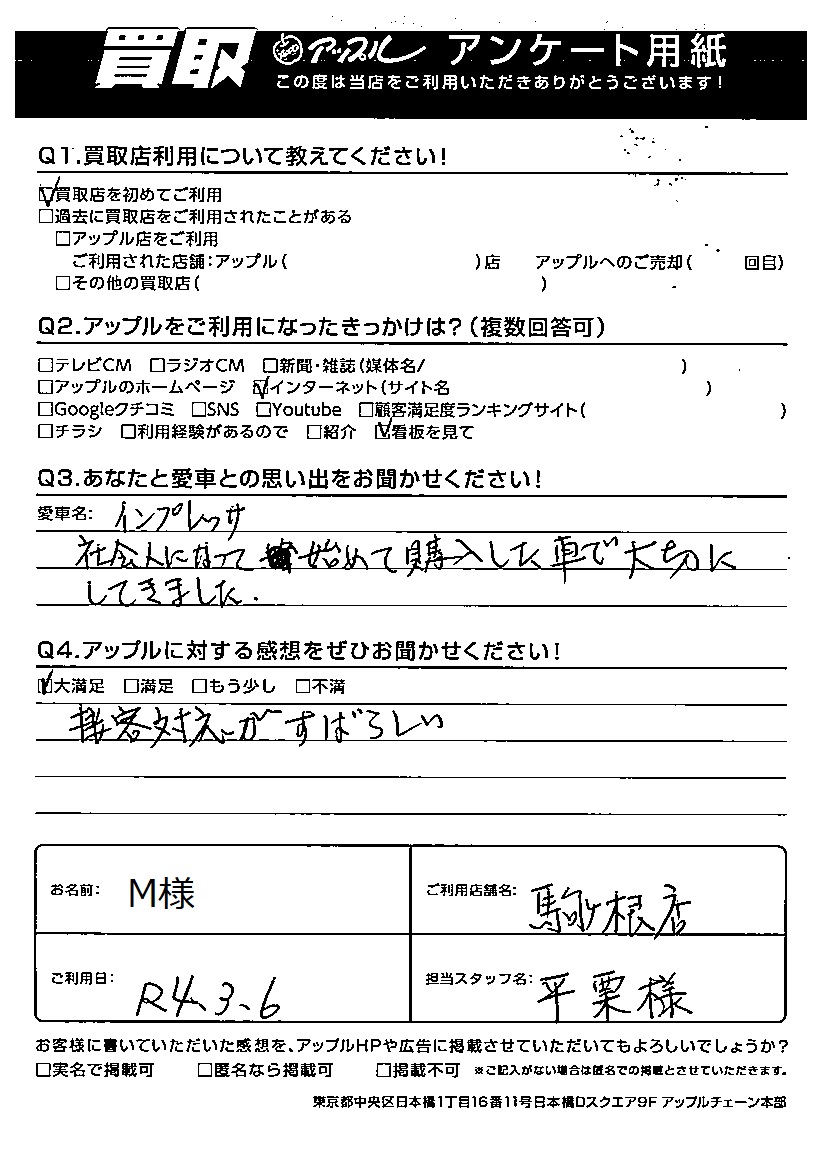 買取 アップル アンケート用紙
この度は当店をご利用いただきありがとうございます!
Q1.買取店利用について教えてください!
☑買取店を初めてご利用
□過去に買取店をご利用されたことがある
□アップル店をご利用
ご利用された店舗:アップル( )店 アップルへのご売却( 回目)
□その他の買取店( )
Q2.アップルをご利用になったきっかけは?(複数回答可)
□テレビCM □ラジオCM □新聞・雑誌(媒体名/ )
□アップルのホームページ ☑インターネット(サイト名 )
□Googleクチコミ □SNS □Youtube □顧客満足度ランキングサイト( )
□チラシ □利用経験があるので □紹介 ☑看板を見て
Q3.あなたと愛車との思い出をお聞かせください!
愛車名: インプレッサ
社会人になって 始めて購入した車で大切に
してきました.
Q4.アップルに対する感想をぜひお聞かせください!
☑大満足 □満足 □もう少し □不満
接客対応がすばらしい
お名前: M様
ご利用店舗名: 駒ヶ根店
ご利用日: R4.3.6
担当スタッフ名: 平栗様
お客様に書いていただいた感想を、アップルHPや広告に掲載させていただいてもよろしいでしょうか?
□実名で掲載可 □匿名なら掲載可 □掲載不可 ※ご記入がない場合は匿名での掲載とさせていただきます。
東京都中央区日本橋1丁目16番11号日本橋Dスクエア9F アップルチェーン本部